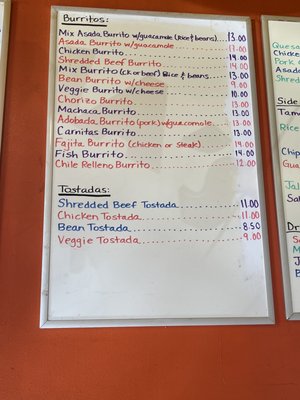 Burritos:
Mix Asada Burrito w/guacamole (Rice & beans) 13.00
Asada Burrito w/guacamole 13.00
Chicken Burrito 14.00
Shredded Beef Burrito 14.00
Mix Burrito (ck or beef) Rice & beans 13.00
Bean Burrito w/cheese 9.00
Veggie Burrito w/cheese 10.00
Chorizo Burrito 13.00
Machaca Burrito 13.00
Adobada Burrito (pork) w/guacamole 13.00
Carnitas Burrito 13.00
Fajita Burrito (chicken or steak) 14.00
Fish Burrito 14.00
Chile Relleno Burrito 12.00
Tostadas:
Shredded Beef Tostada 11.00
Chicken Tostada 11.00
Bean Tostada 8.50
Veggie Tostada 9.00
Side
Rice